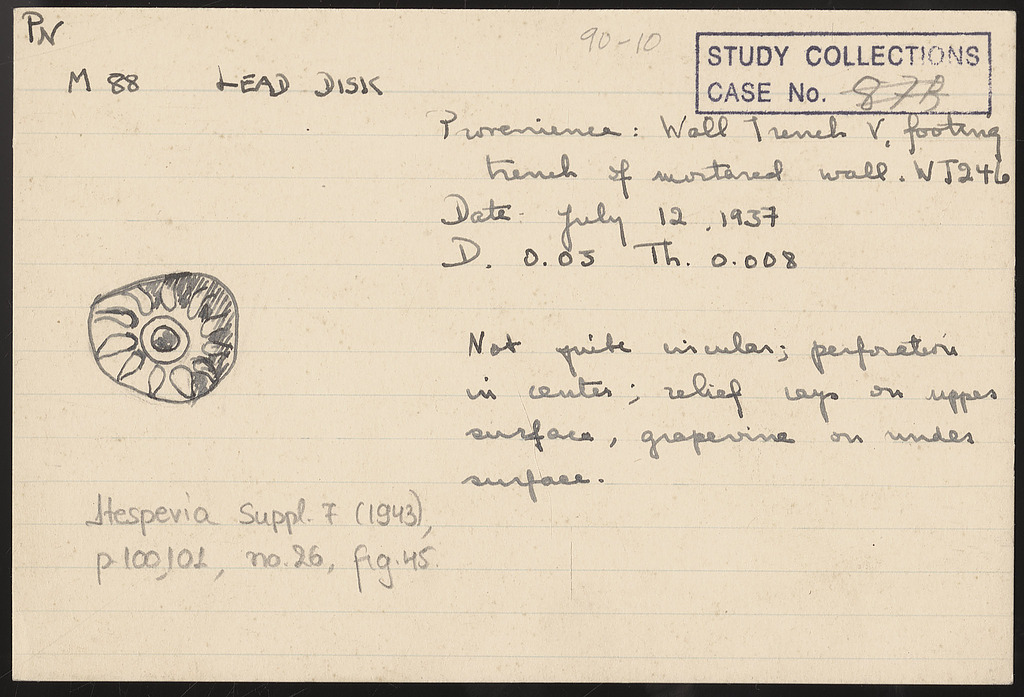 PN
90-10
STUDY COLLECTIONS
CASE No. 87B
M 88 LEAD DISK
Provenience: Wall Trench V, footing
trench of mortared wall. WJ246
Date- July 12, 1937
D. 0.05 Th. 0.008
Not quite circular; perforation
in center; relief rays on upper
surface, grapevine on under
surface.
Hesperia Suppl. 7 (1943),
p 100,101, no. 26, fig. 45.